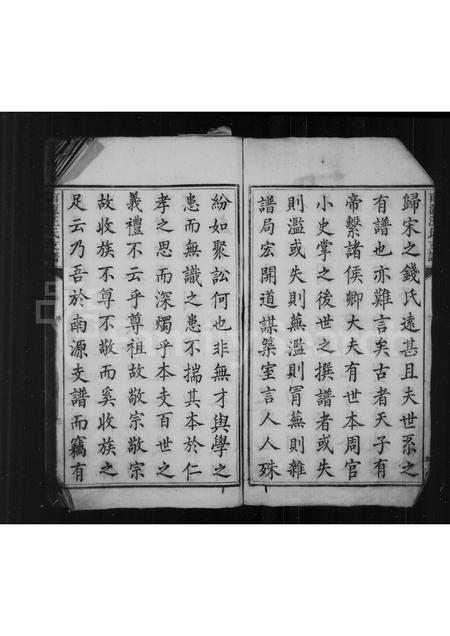 歸宋之錢氏遠甚且夫世系之
有譜也亦難言矣古者天子有
帝繫諸侯卿大夫有世本周官
小史掌之後世之撰譜者或失
則濫或失則蕪濫則冐蕪則雜
譜局宏開道謀築室言人人殊
紛如聚訟何也非無才與學之
患而無識之患不揣其本於仁
孝之思而深燭乎本支百世之
義禮不云乎尊祖故敬宗敬宗
故收族不尊不敬而奚收族之
足云乃吾於南源支譜而竊有